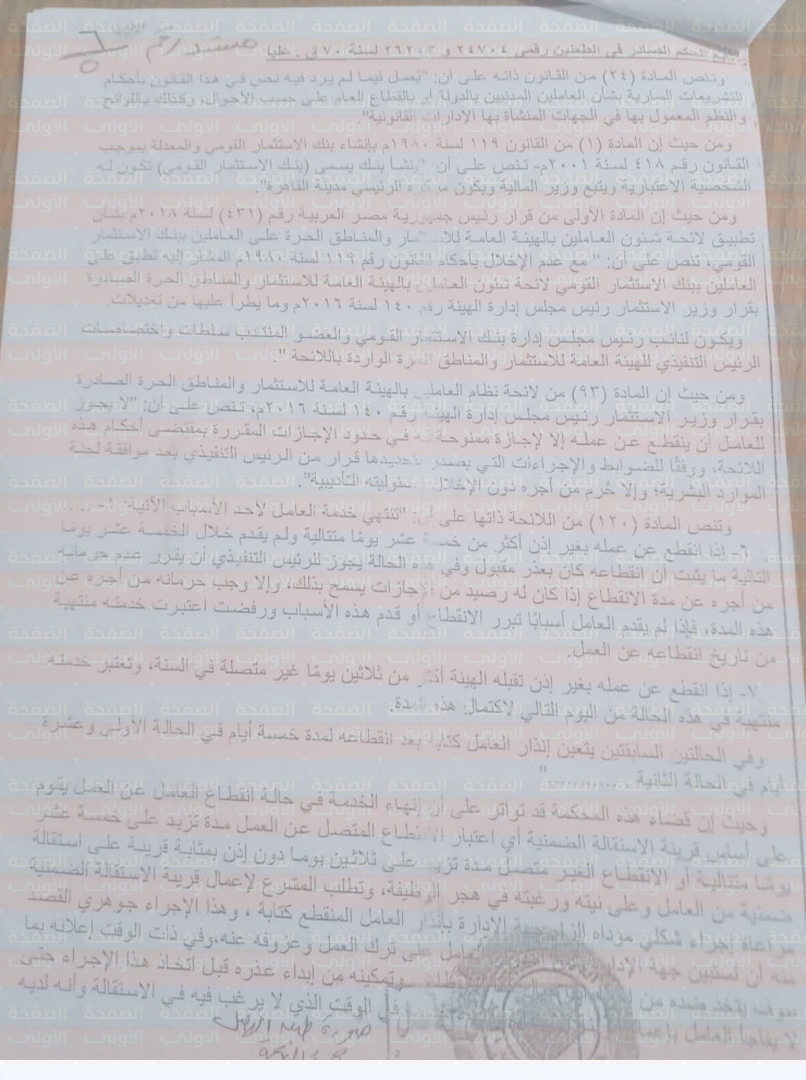 تابع الحكم الصادر في الطعنين رقمي ٢٤٧٠٤ و ٢٦٢٤٣ لسنة ٧٠ ق . عليا
مستند رقم ٦
٥
وتنص المادة (٢٤) من القانون ذاته على أن: "يُعمل فيما لم يرد فيه نص في هذا القانون بأحكام
التشريعات السارية بشأن العاملين المدنيين بالدولة أو بالقطاع العام على حسب الأحوال، وكذلك باللوائح
والنظم المعمول بها في الجهات المنشأة بها الإدارات القانونية"
ومن حيث إن المادة (١) من القانون ١١٩ لسنة ١٩٨٠م بإنشاء بنك الاستثمار القومي والمعدلة بموجب
القانون رقم ٤١٨ لسنة ٢٠٠١م- تنص على أن: "ينشأ بنك يسمى (بنك الاستثمار القومي) تكون له
الشخصية الاعتبارية ويتبع وزير المالية ويكون مقره الرئيسي مدينة القاهرة".
ومن حيث إن المادة الأولى من قرار رئيس جمهورية مصر العربية رقم (٤٣١) لسنة ٢٠١٨م بشأن
تطبيق لائحة شئون العاملين بالهيئة العامة للاستثمار والمناطق الحرة على العاملين ببنك الاستثمار
القومي، تنص على أن: " مع عدم الإخلال بأحكام القانون رقم ١١٩ لسنة ١٩٨٠م المشار إليه تطبق على
العاملين ببنك الاستثمار القومي لائحة شئون العاملين بالهيئة العامة للاستثمار والمناطق الحرة الصادرة
بقرار وزير الاستثمار رئيس مجلس إدارة الهيئة رقم ١٤٠ لسنة ٢٠١٦م وما يطرأ عليها من تعديلات.
ويكون لنائب رئيس مجلس إدارة بنك الاستثمار القومي والعضو المنتدب سلطات واختصاصات
الرئيس التنفيذي للهيئة العامة للاستثمار والمناطق الحرة الواردة باللائحة ".
ومن حيث إن المادة (٩٣) من لائحة نظام العاملين بالهيئة العامة للاستثمار والمناطق الحرة الصادرة
بقرار وزير الاستثمار رئيس مجلس إدارة الهيئة رقم ١٤٠ لسنة ٢٠١٦م، تنص على أن: "لا يجوز
للعامل أن ينقطع عن عمله إلا لإجازة ممنوحة له في حدود الإجازات المقررة بمقتضى أحكام هذه
اللائحة، ووفقًا للضوابط والإجراءات التي يصدر بتحديدها قرار من الرئيس التنفيذي بعد موافقة لجنة
الموارد البشرية؛ وإلا حُرم من أجره دون الإخلال بمسئوليته التأديبية".
وتنص المادة (١٢٠) من اللائحة ذاتها على أن: "تنتهي خدمة العامل لأحد الأسباب الآتية: ١- .....
٦- إذا انقطع عن عمله بغير إذن أكثر من خمسة عشر يومًا متتالية ولم يقدم خلال الخمسة عشر يومًا
التالية ما يثبت أن انقطاعه كان بعذر مقبول وفي هذه الحالة يجوز للرئيس التنفيذي أن يقرر عدم حرمانه
من أجره عن مدة الانقطاع إذا كان له رصيد من الإجازات يسمح بذلك، وإلا وجب حرمانه من أجره عن
هذه المدة، فإذا لم يقدم العامل أسبابًا تبرر الانقطاع أو قدم هذه الأسباب ورفضت اعتبرت خدمته منتهية
من تاريخ انقطاعه عن العمل.
٧- إذا انقطع عن عمله بغير إذن تقبله الهيئة أكثر من ثلاثين يومًا غير متصلة في السنة، وتعتبر خدمته
منتهية في هذه الحالة من اليوم التالي لاكتمال هذه المدة.
وفي الحالتين السابقتين يتعين إنذار العامل كتابة بعد انقطاعه لمدة خمسة أيام في الحالة الأولى وعشرة
أيام في الحالة الثانية .............."
وحيث إن قضاء هذه المحكمة قد تواتر على أن إنهاء الخدمة في حالة انقطاع العامل عن العمل يقوم
على أساس قرينة الاستقالة الضمنية أي اعتبار الانقطاع المتصل عن العمل مدة تزيد على خمسة عشر
يومًا متتالية أو الانقطاع الغير متصل مدة تزيد على ثلاثين يوما دون إذن بمثابة قرينة على استقالة
ضمنية من العامل وعلى نيته ورغبته في هجر الوظيفة، وتطلب المشرع لإعمال قرينة الاستقالة الضمنية
مراعاة إجراء شكلي مؤداه إلزام جهة الإدارة بإنذار العامل المنقطع كتابة ، وهذا الإجراء جوهري القصد
منه أن تستبين جهة الإدارة العامل على ترك العمل وعزوفه عنه،وفي ذات الوقت إعلانه بما
سوف يتخذ ضده من وتمكينه من إبداء عذره قبل اتخاذ هذا الإجراء حتى
لا يفاجأ العامل بإعمال في الوقت الذي لا يرغب فيه في الاستقالة وأنه لديه
صورة طبق الأصل